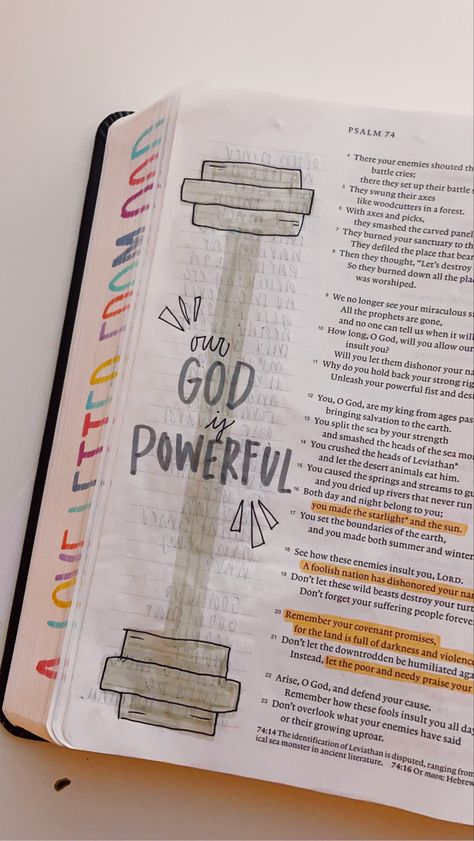 A LOVE LETTER FROM GOD
our
GOD
is
POWERFUL
PSALM 74
4 There your enemies shouted th
battle cries;
there they set up their battle
5 They swung their axes
like woodcutters in a forest.
6 With axes and picks,
they smashed the carved panel
7 They burned your sanctuary to th
They defiled the place that bear
8 Then they thought, “Let’s destroy
So they burned down all the pla
was worshiped.
9 We no longer see your miraculous s
All the prophets are gone,
and no one can tell us when it wil
10 How long, O God, will you allow our
insult you?
Will you let them dishonor your na
11 Why do you hold back your strong rig
Unleash your powerful fist and des
12 You, O God, are my king from ages pas
bringing salvation to the earth.
13 You split the sea by your strength
and smashed the heads of the sea mon
14 You crushed the heads of Leviathan*
and let the desert animals eat him.
15 You caused the springs and streams to g
and you dried up rivers that never run
16 Both day and night belong to you;
you made the starlight* and the sun.
17 You set the boundaries of the earth,
and you made both summer and winter
18 See how these enemies insult you, LORD.
A foolish nation has dishonored your nam
19 Don’t let these wild beasts destroy your turt
Don’t forget your suffering people forever
20 Remember your covenant promises,
for the land is full of darkness and violenc
21 Don’t let the downtrodden be humiliated aga
Instead, let the poor and needy praise your
22 Arise, O God, and defend your cause.
Remember how these fools insult you all day
23 Don’t overlook what your enemies have said
or their growing uproar.
74:14 The identification of Leviathan is disputed, ranging from
ical sea monster in ancient literature. 74:16 Or moon; Hebrew